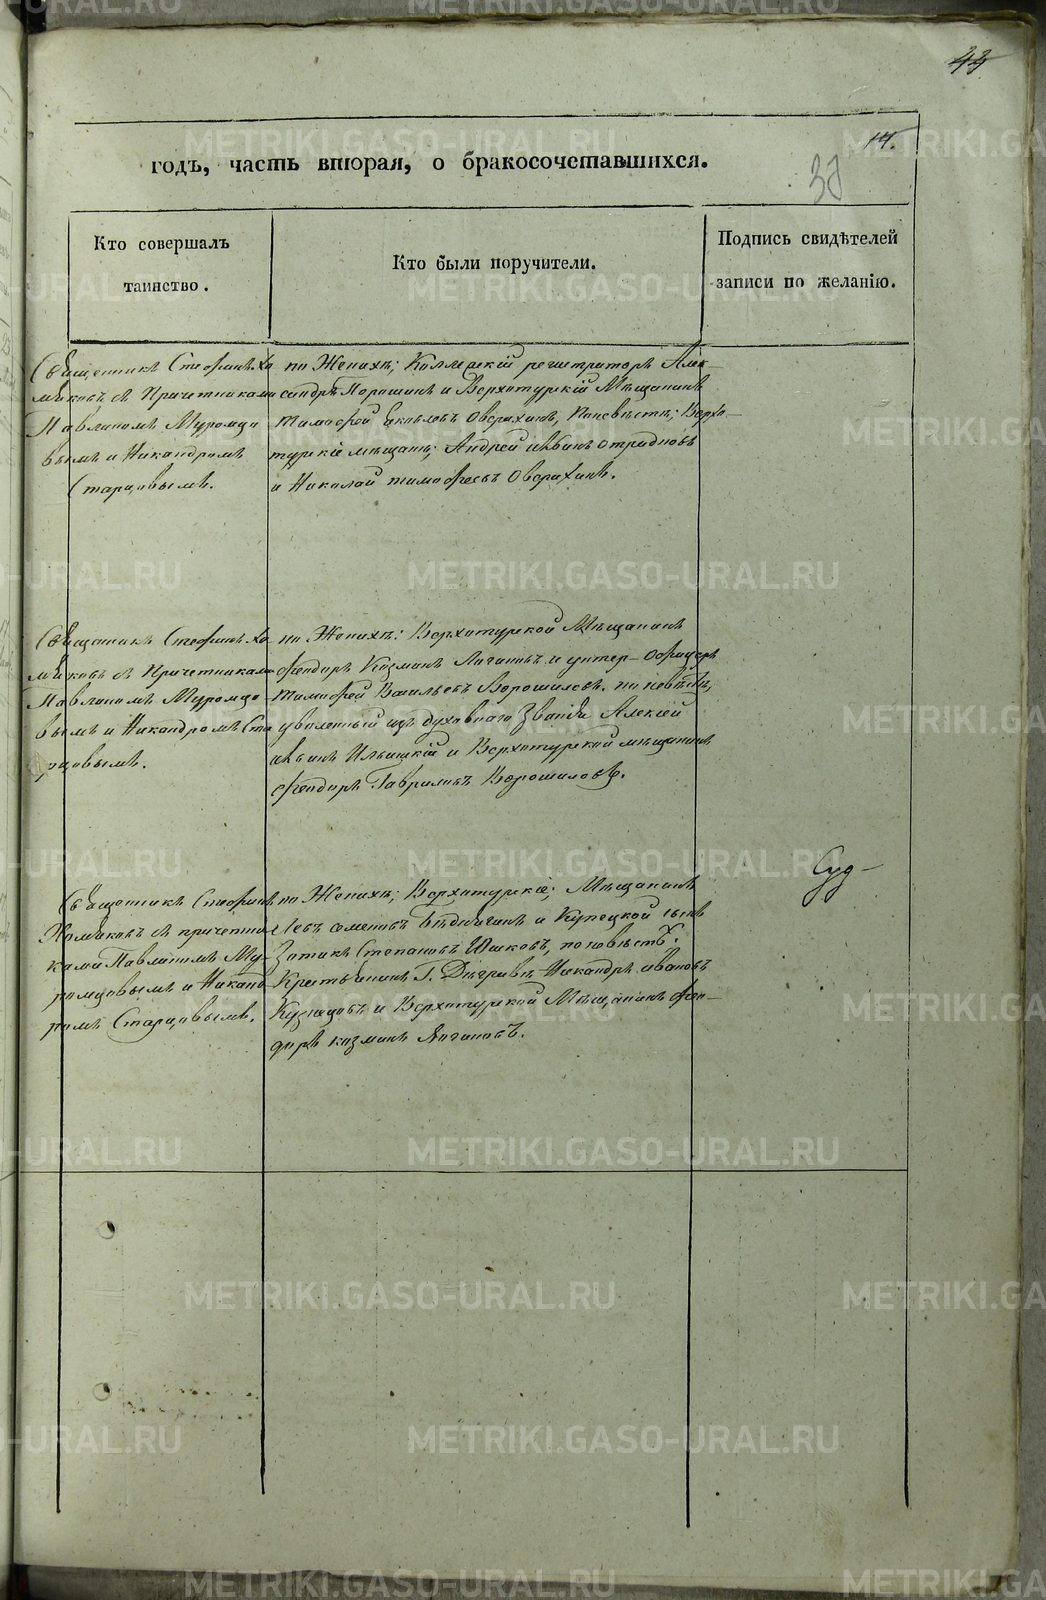 44
14.
годъ, часть вторая, о бракосочетавшихся.
Кто совершалъ
таинство.
Кто были поручители.
Подпись свидѣтелей
записи по желанію.
Священникъ Стефанъ Хо
мяковъ съ Причетниками
Павлиномъ Муромцо
вымъ и Никандромъ
Старцовымъ.
по Женихѣ; Коллежскій регистраторъ Алек
сандръ Порошинъ и Верхотурскій Мѣщанинъ
Тимофей Яковлевъ Оверихинъ, Поневѣстѣ; Верхо-
турскіе мѣщане; Андрей Ивановъ Отрадновъ
и Николай тимофеевъ Оверихинъ.
Священникъ Стефанъ Хо
мяковъ съ Причетниками
Павлиномъ Муромцо
вымъ и Никандромъ Ста
рцовымъ.
по Женихѣ: Верхотурской Мѣщанинъ
Феодоръ Козминъ Логиновъ и унтер-Офицеръ
Тимофей Васильевъ Ворошиловъ. по невѣстѣ,
уволенный изъ духовнаго Званія Алексей
Ильицкій и Верхотурской мѣщанинъ
Феодоръ Гавриловъ Ворошиловъ.
Священникъ Стефанъ
Хомяковъ съ причетни
ками Павлиномъ Му-
ромцовымъ и Никанд
ромъ Старцовымъ.
по Женихѣ; Верхотурскіе; Мѣщанинъ
Левъ семеновъ и Купецкой сынъ
Зотикъ Степановъ Юшковъ, поневѣстѣ:
Крестьянинъ Г. Никандръ ивановъ
Кузнецовъ и Верхотурской Мѣщанинъ Фео-
доръ козминъ Логиновъ.
METRIKI.GASO-URAL.RU